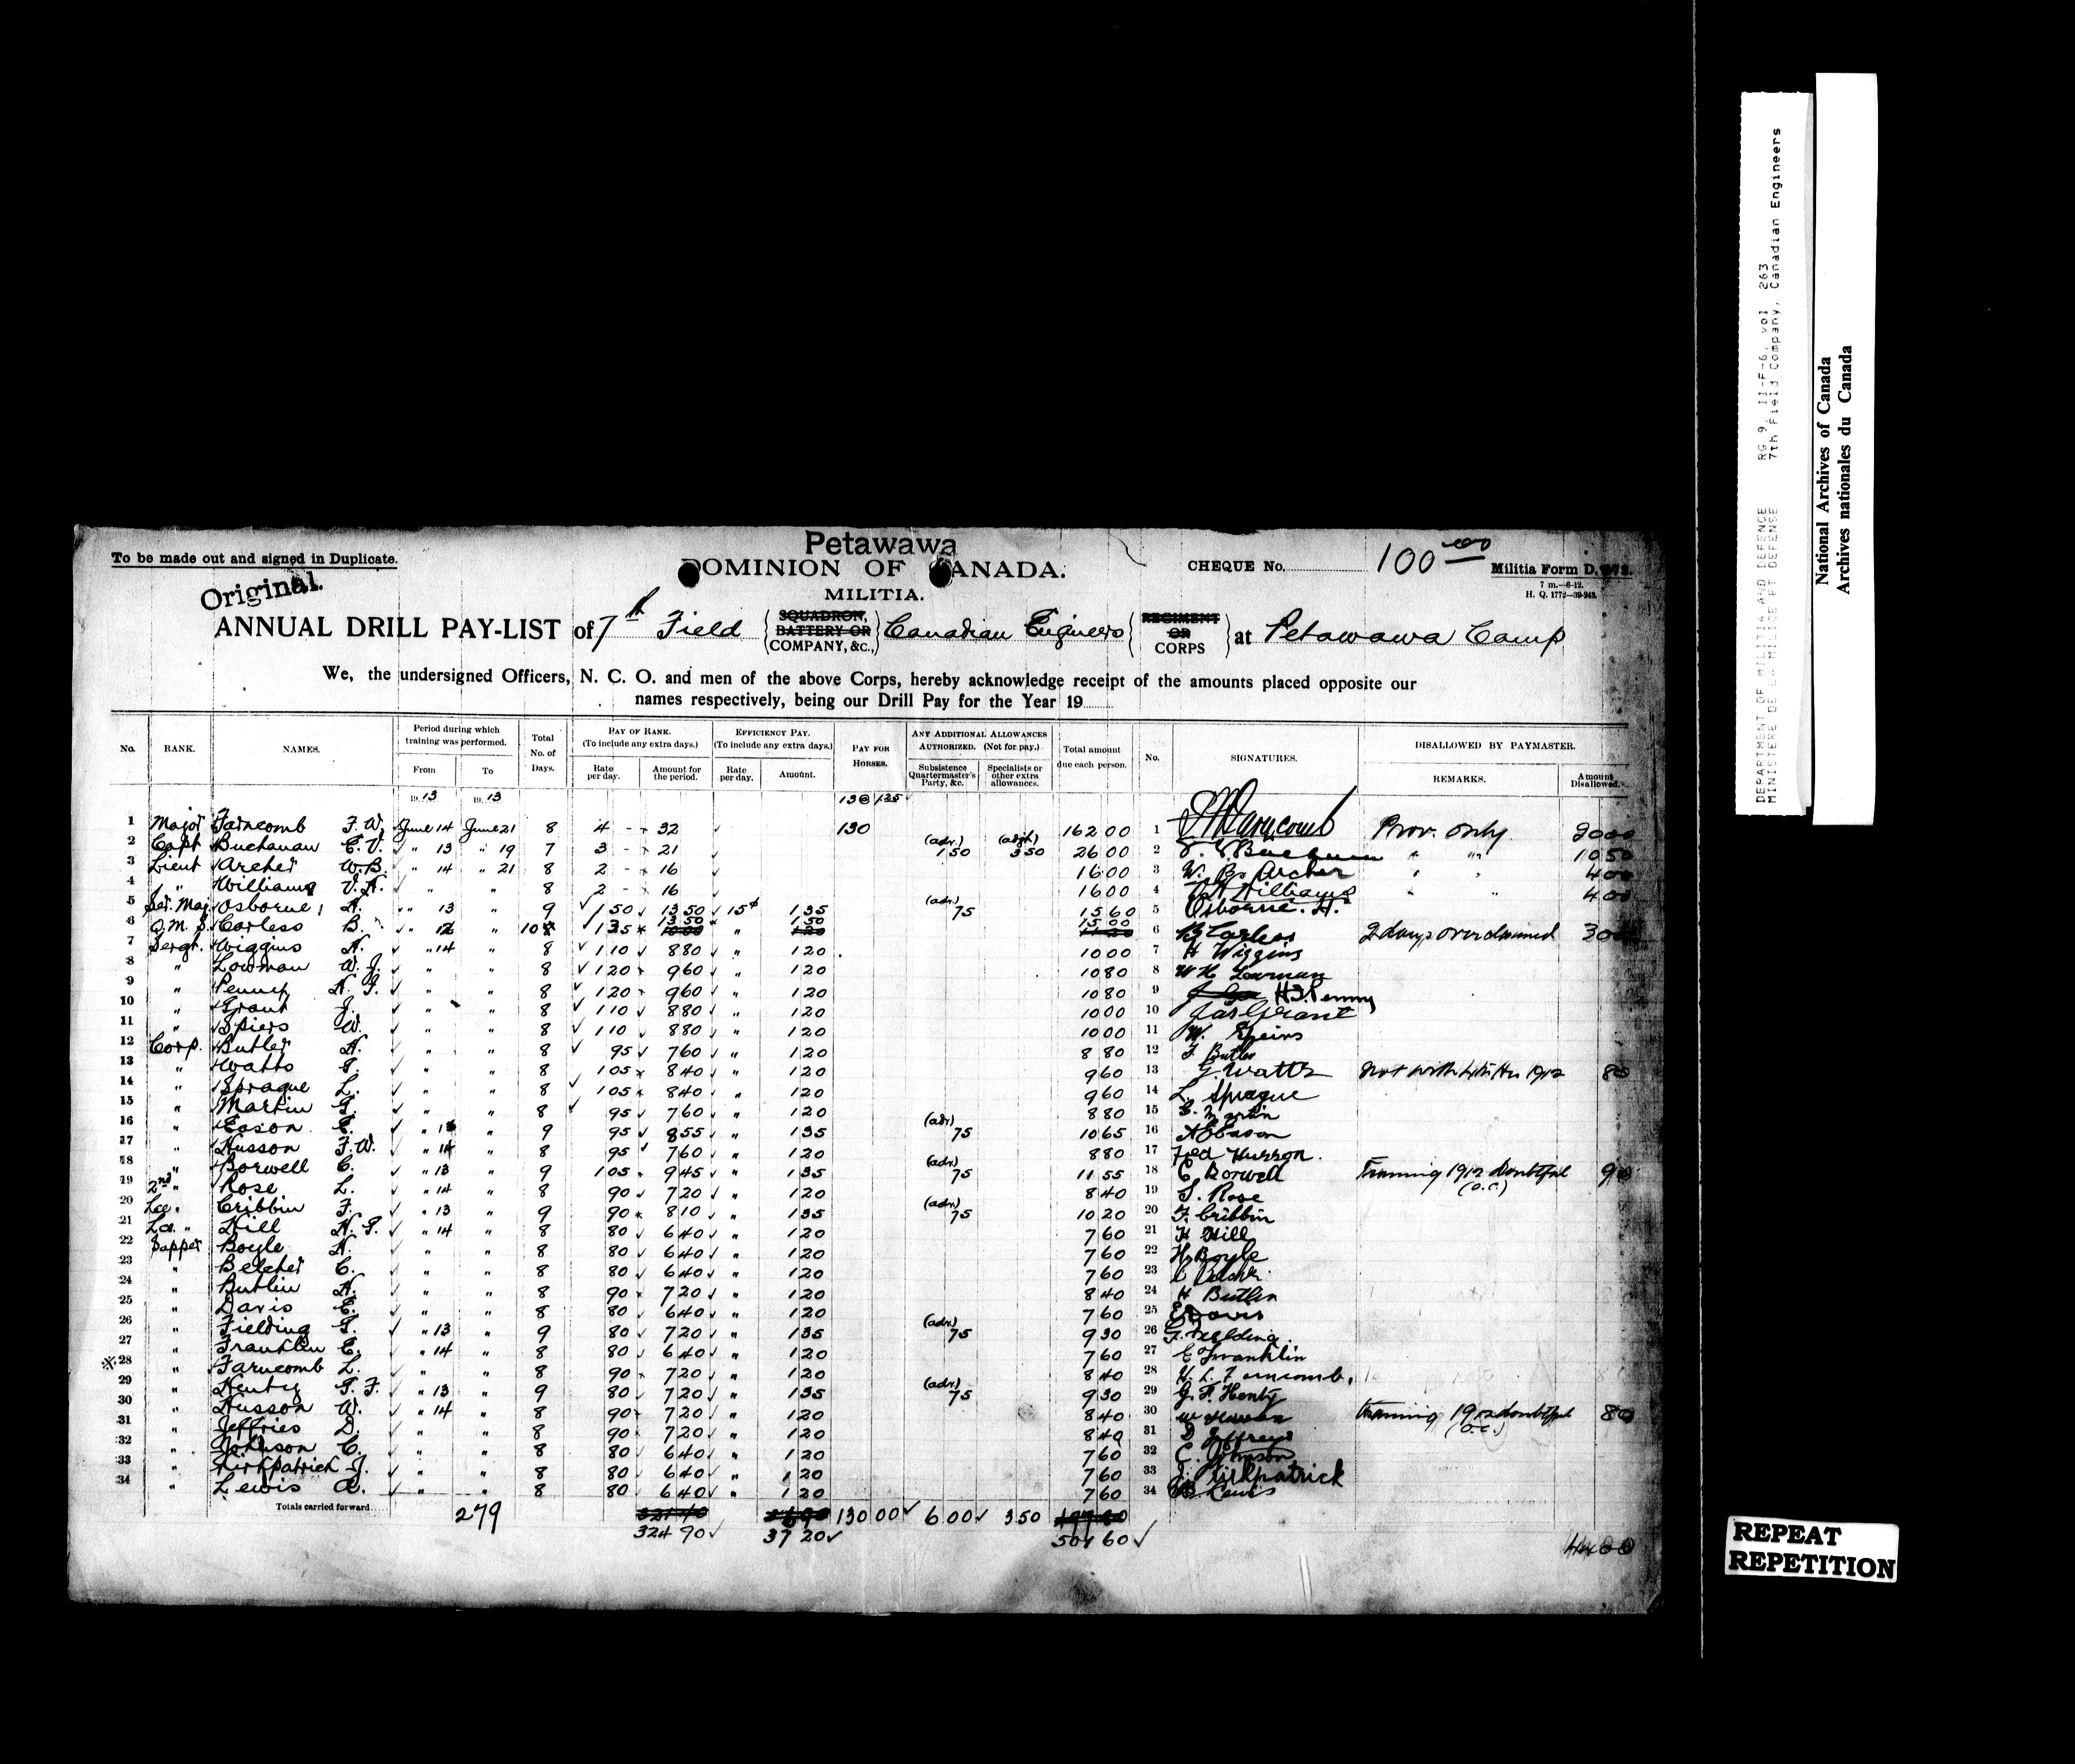 Petawawa
To be made out and signed in Duplicate.
DOMINION OF CANADA.
CHEQUE No. 100 00
Militia Form D.
Original.
MILITIA.
7 m.—6-12.
H. Q. 1772—39-
ANNUAL DRILL PAY-LIST of 7th Field (SQUADRON, BATTERY OR COMPANY, &C.,) Canadian Engineers (REGIMENT OR CORPS) at Petawawa Camp
We, the undersigned Officers, N. C. O. and men of the above Corps, hereby acknowledge receipt of the amounts placed opposite our
names respectively, being our Drill Pay for the Year 19
No. RANK. NAMES. Period during which training was performed. From To Total No. of Days. PAY OF RANK. (To include any extra days.) Rate per day. Amount for the period. EFFICIENCY PAY. (To include any extra days.) Rate per day. Amount. PAY FOR HORSES. ANY ADDITIONAL ALLOWANCES AUTHORIZED. (Not for pay.) Subsistence Quartermaster's Party, &c. Specialists or other extra allowances. Total amount due each person. No. SIGNATURES. DISALLOWED BY PAYMASTER. REMARKS. Amount Disallowed.
19 13 19 13
1 Major Farncomb F. W. June 14 June 21 8 4 - 32 130 162 00 1 Prov. only 20 00
2 Capt Buchanan C. V. " 13 " 19 7 3 - 21 (adv.) 1 50 (adjt.) 3 50 26 00 2 " " 10 50
3 Lieut Archer W. B. " 14 " 21 8 2 - 16 16 00 3 W. B. Archer " " 4 00
4 " Williams V. A. " " 8 2 - 16 16 00 4 Williams " " 4 00
5 Ser. Maj. Osborne, H. " 13 " 9 1 50 13 50 15¢ 1 35 (adv.) 75 15 60 5 Osborne. H.
6 Q.M.S. Corless B. " 12 " 10 1 35 13 50 " 1 50 15 00 6 2 days overclaimed 3 00
7 Sergt. Wiggins H. " 14 " 8 1 10 8 80 " 1 20 10 00 7 H Wiggins
8 " Lowman W. J. " " 8 1 20 9 60 " 1 20 10 80 8 Lowman
9 " Penny H. G. " " 8 1 20 9 60 " 1 20 10 80 9 H. G. Penny
10 " Grant J. " " 8 1 10 8 80 " 1 20 10 00 10 Jas Grant
11 " Spiers W. " " 8 1 10 8 80 " 1 20 10 00 11 W. Speirs
12 Corp. Butler H. " " 8 95 7 60 " 1 20 8 80 12 Butler
13 " Watts G. " " 8 1 05 8 40 " 1 20 9 60 13 G. Watts not with 4th Hrs 1912 80
14 " Sprague L. " " 8 1 05 8 40 " 1 20 9 60 14 L. Sprague
15 " Martin G. " " 8 95 7 60 " 1 20 8 80 15 G. Martin
16 " Eason E. " 13 " 9 95 8 55 " 1 35 (adv) 75 10 65 16 Eason
17 " Husson F. W. " 14 " 8 95 7 60 " 1 20 8 80 17 Fred Husson.
18 " Borwell C. " 13 " 9 1 05 9 45 " 1 35 (adv.) 75 11 55 18 C Borwell Training 1912 doubtful (O.C.) 90
19 2nd " Rose L. " 14 " 8 90 7 20 " 1 20 8 40 19 Rose
20 Cribbin F. " 13 " 9 90 8 10 " 1 35 (adv.) 75 10 20 20 F. Cribbin
21 " Hill H. G. " 14 " 8 80 6 40 " 1 20 7 60 21 H Hill
22 Sapper Boyle H. " " 8 80 6 40 " 1 20 7 60 22 H. Boyle
23 " Belcher C. " " 8 80 6 40 " 1 20 7 60 23 C Belcher
24 " Butlin H. " " 8 90 7 20 " 1 20 8 40 24 H Butlin
25 " Davis E. " " 8 80 6 40 " 1 20 7 60 25 E Davis
26 " Fielding G. " 13 " 9 80 7 20 " 1 35 (adv.) 75 9 30 26 G. Fielding.
27 " Franklin E. " 14 " 8 80 6 40 " 1 20 7 60 27 E Franklin
※28 " Farncomb L. " " 8 90 7 20 " 1 20 8 40 28 H. L. Farncomb.
29 " Henty G. F. " 13 " 9 80 7 20 " 1 35 (adv.) 75 9 30 29 G. F. Henty
30 " Husson W. " 14 " 8 90 7 20 " 1 20 8 40 30 W Husson Training 1912 doubtful (O.C.) 80
31 " Jeffries D. " " 8 90 7 20 " 1 20 8 40 31 D Jeffreys
32 " Johnson C. " " 8 80 6 40 " 1 20 7 60 32 C. Johnson
33 " Kirkpatrick J. " " 8 80 6 40 " 1 20 7 60 33 J. Kirkpatrick
34 " Lewis A. " " 8 80 6 40 " 1 20 7 60 34 Lewis
Totals carried forward 279 130 00 6 00 3 50
324 90 37 20 501 60 44 00
DEPARTMENT OF MILITIA AND DEFENCE RG 9, II-F-6, vol 263
MINISTERE DE LA MILICE ET DEFENSE 7th Field Company, Canadian Engineers
National Archives of Canada
Archives nationales du Canada
REPEAT
REPETITION